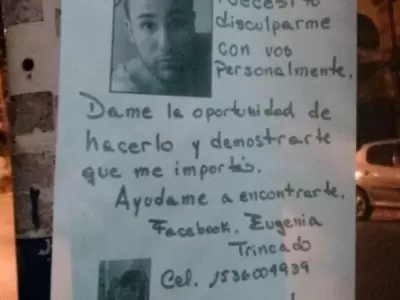 necesito
disculparme
con vos
personalmente.
Dame la oportunidad de
hacerlo y demostrarte
que me importás.
Ayudame a encontrarte.
Facebook. Eugenia
Trincado
Cel. 1536004939